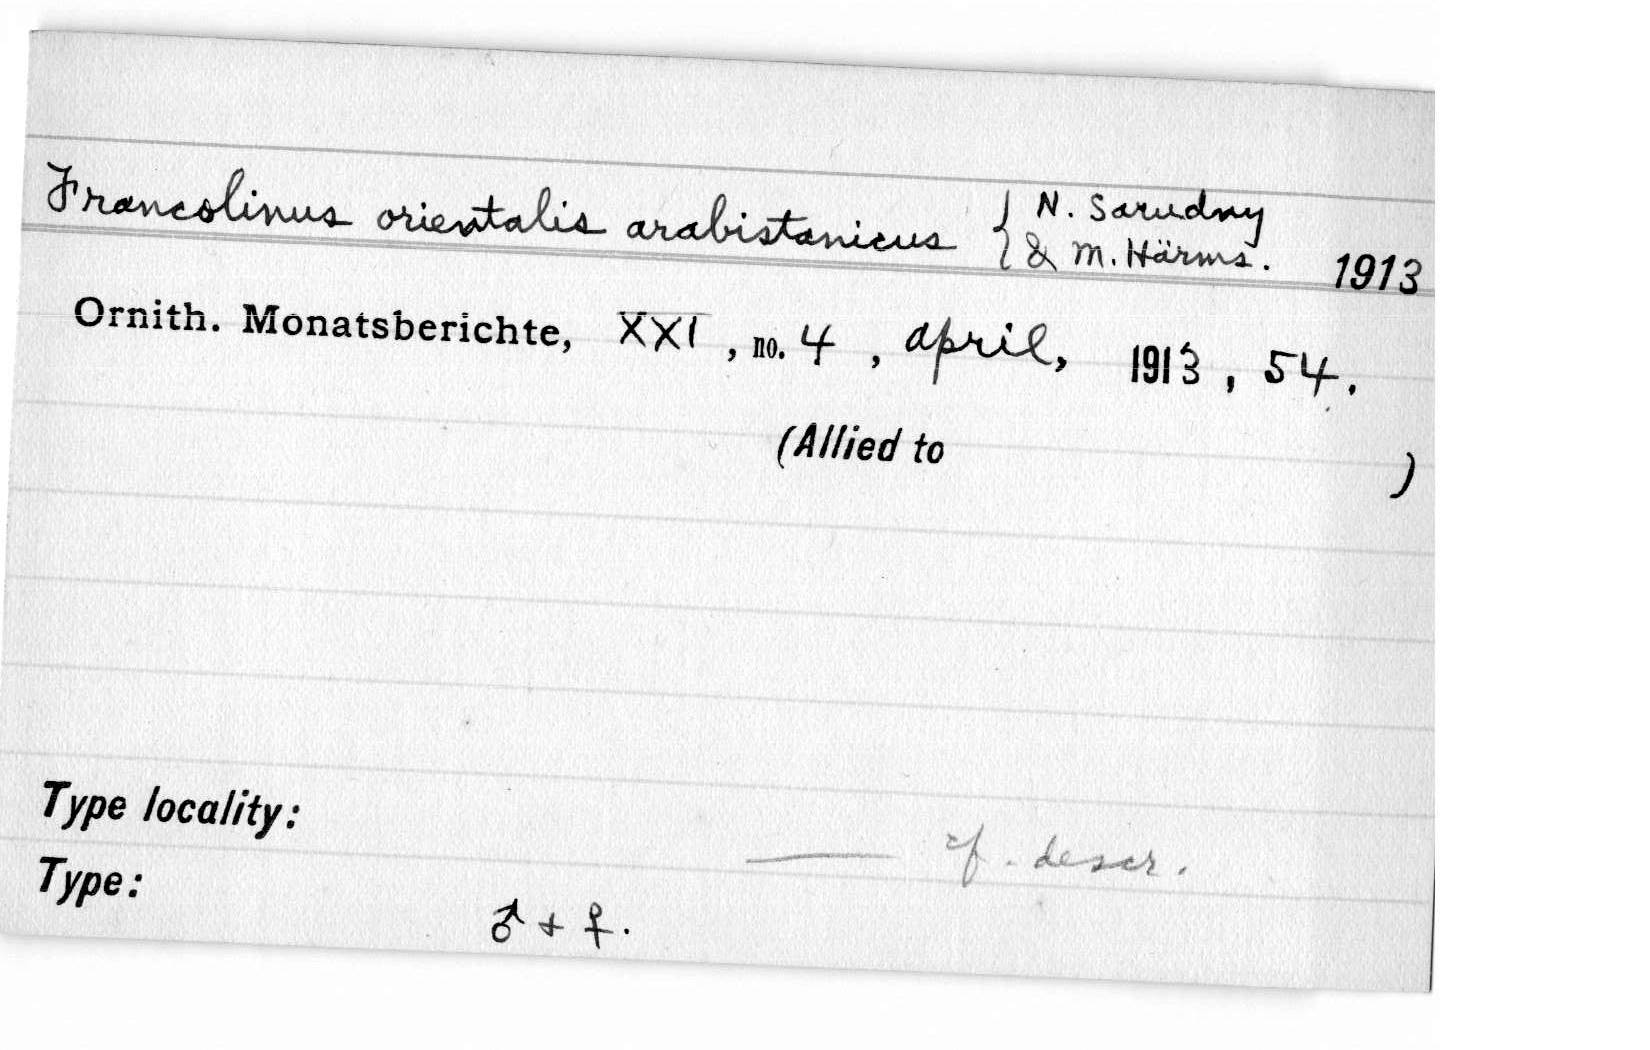 Francolinus orientalis arabistanicus { N. Sarudny
& M. Härms. 1913
Ornith. Monatsberichte, XXI, no. 4, april, 1913, 54.
(Allied to )
Type locality:
—— cf. descr.
Type:
♂ + ♀.